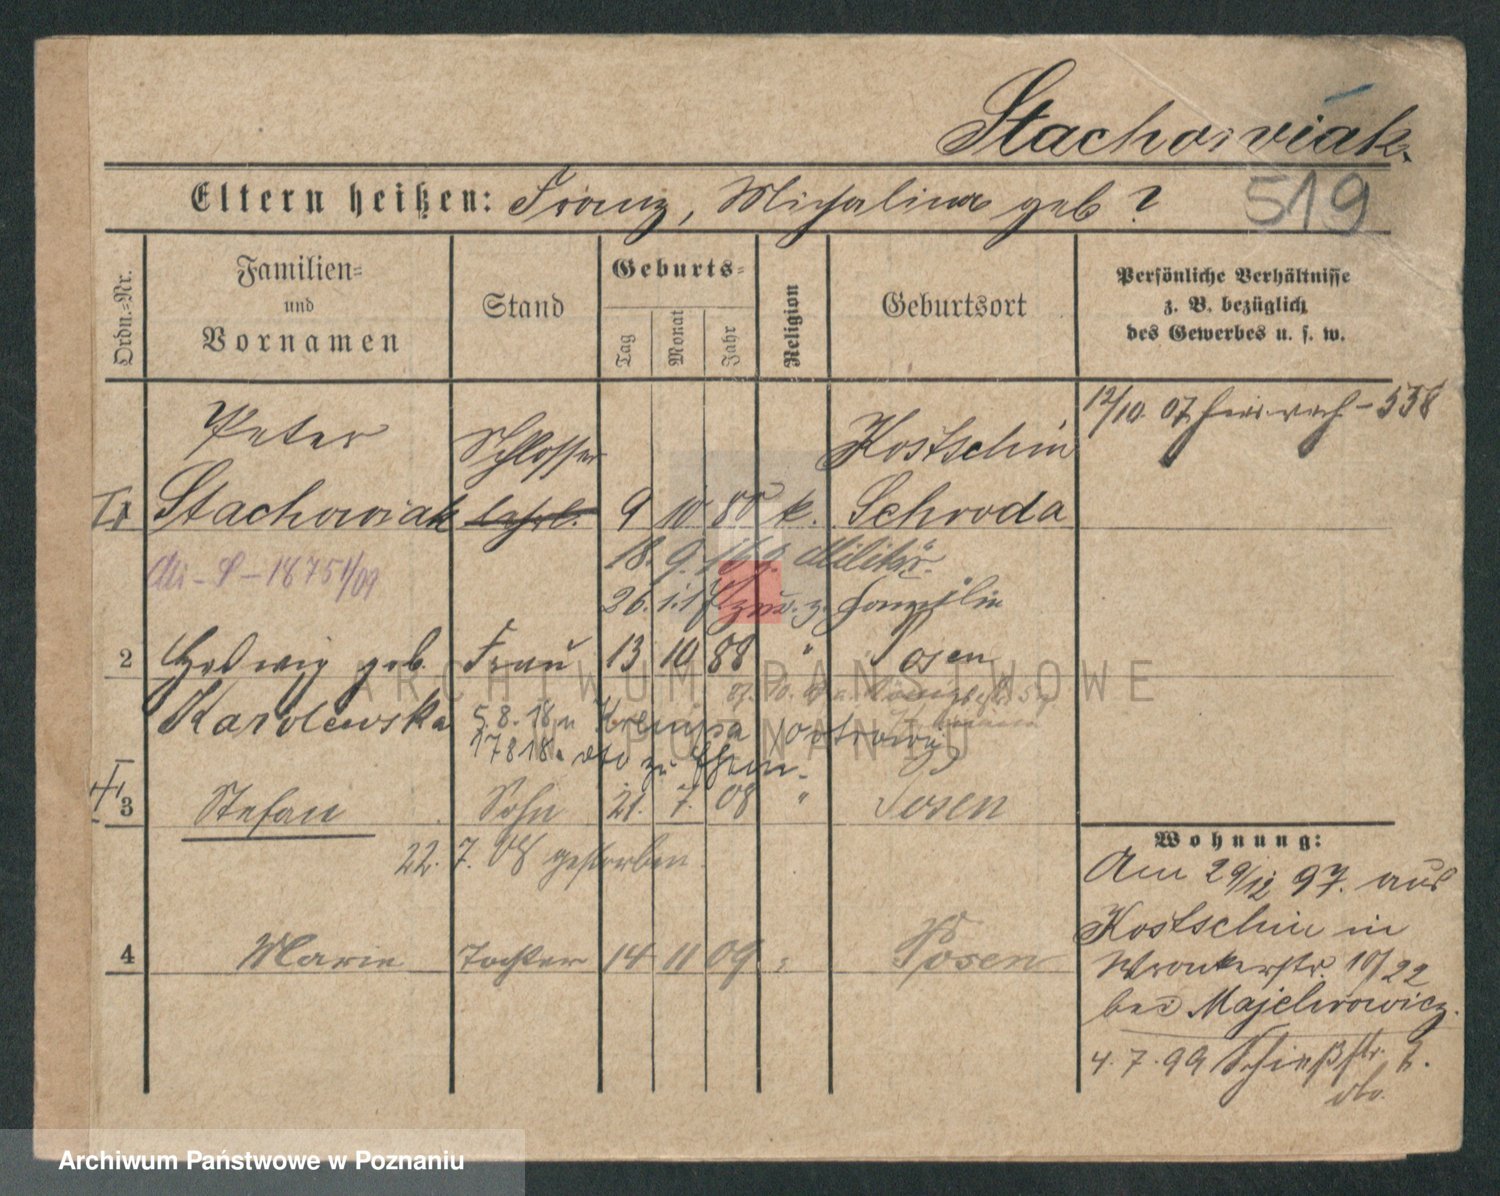 Stachowiak.
Eltern heißen: Franz, Michalina geb ?
519
Ordn.=Nr.
Familien=
und
Vornamen
Stand
Geburts=
Tag
Monat
Jahr
Religion
Geburtsort
Persönliche Verhältnisse
z. B. bezüglich
des Gewerbes u. s. w.
12/10. 07. 538
Peter
Schlosser
Kostschin
1
Stachowiak
Lehrl.
9
10
80
k.
Schroda
18. 9. 16 z. Militär.
26. 1. 17 z. Familie
2
Hedwig geb.
Frau
13
10
88
"
Posen
Karolewska
5.8.18
17 8 18.
3
Stefan
Sohn
21.
7.
08
"
Posen
22. 7. 08 gestorben.
4
Marie
Tochter
14
11
09
"
Posen
Wohnung:
Am 29/12 97. aus
Kostschin in
Wronkerstr. 10/22
bei Majchrowicz.
4. 7. 99 Schießstr. 7.
ARCHIWUM PAŃSTWOWE
W POZNANIU
Archiwum Państwowe w Poznaniu